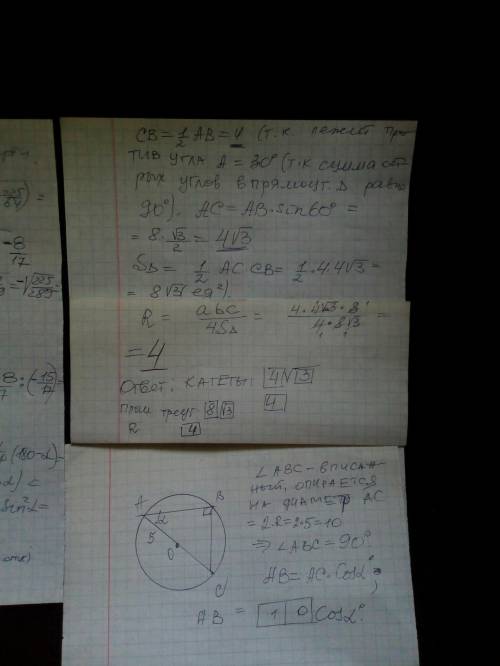 CB = 1/2 AB = 4 (т.к. лежит про-
тив угла A = 30° (т.к сумма ост-
рых углов в прямоуг. Δ равна
90°). AC = AB·sin60° =
= 8·√3/2 = 4√3
SΔ = 1/2 AC·CB = 1/2·4·4√3 =
= 8√3 (ед²).
R = abc/4SΔ = 4·4√3·8/4·8√3 =
= 4
Ответ: КАТЕТЫ: 4√3
4
площ треуг. 8√3
R 4
-8/17
∠ABC - ВПИСАН-
НЫЙ, ОПИРАЕТСЯ
НА ДИАМЕТР AC
= 2·R = 2·5 = 10
⇒ ∠ABC = 90°.
AB = AC·Cosα°;
AB = 10 Cosα°.
A
B
α
5
O
C